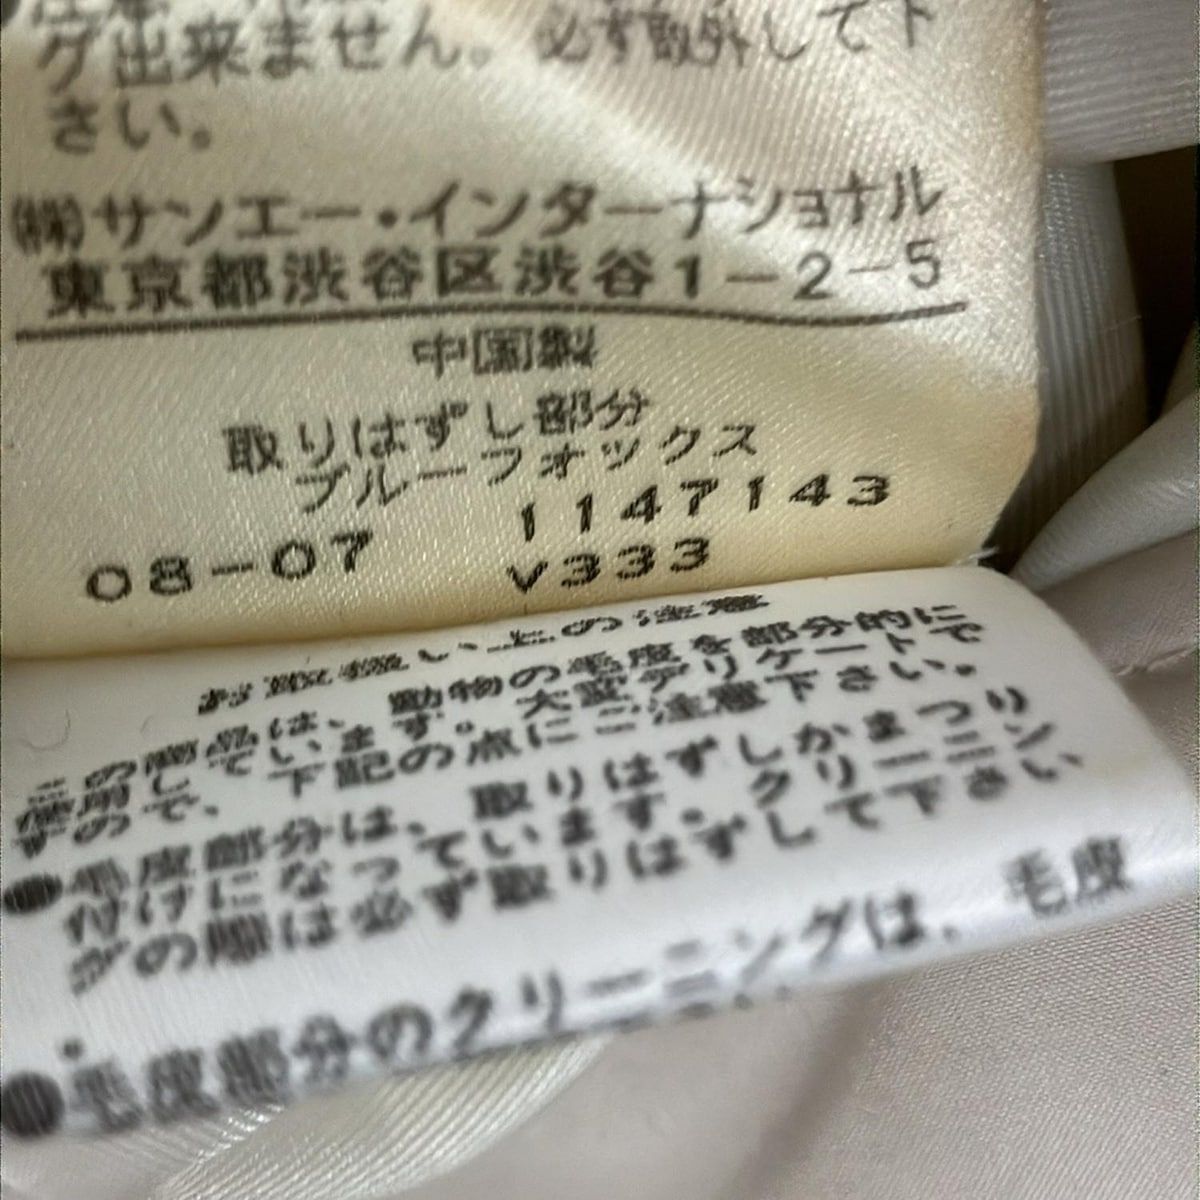 グ出来ません。必ず取外して下
さい。
㈱サンエー・インターナショナル
東京都渋谷区渋谷1-2-5
中国製
取りはずし部分
ブルーフォックス
08-07 1147143
V333
お取扱い上の注意
この商品は、動物の毛皮を部分的に
使用しています。大変デリケートで
すので、下記の点にご注意下さい。
●毛皮部分は、取りはずしかまつり
付けになっています。クリーニン
グの際は必ず取りはずして下さい
。
●毛皮部分のクリーニングは、毛皮